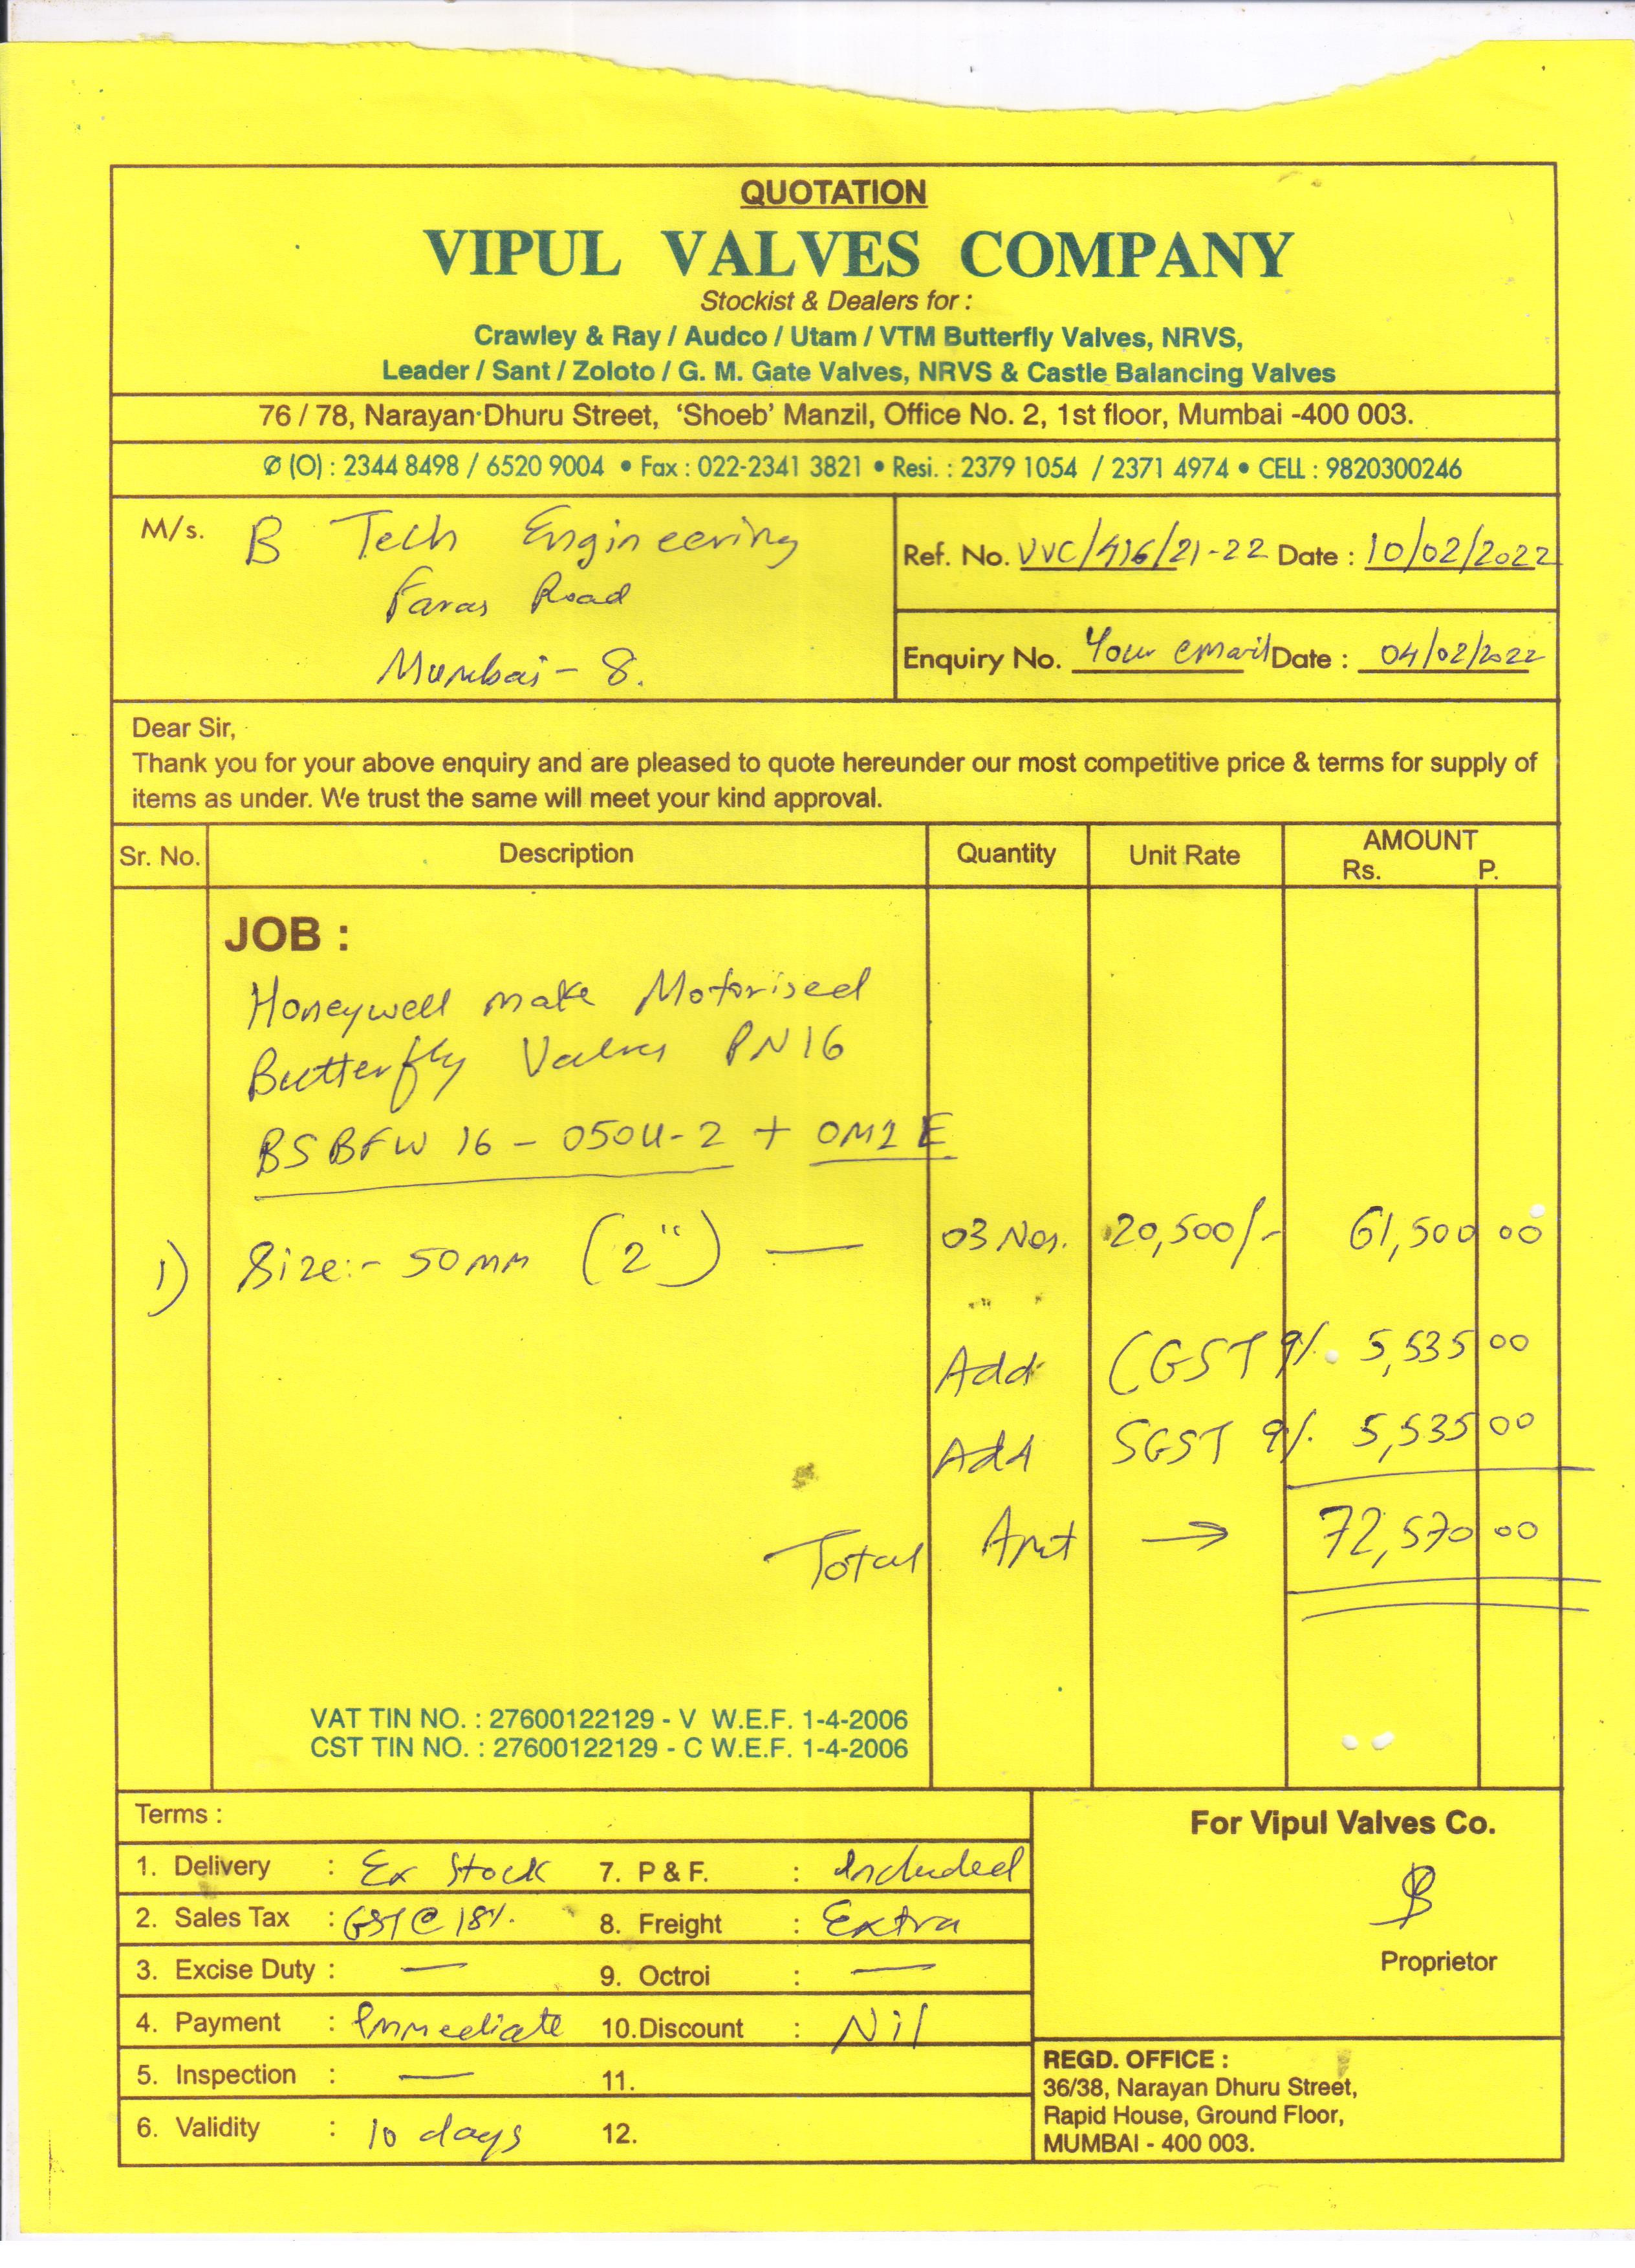 QUOTATION
VIPUL VALVES COMPANY
Stockist & Dealers for :
Crawley & Ray / Audco / Utam / VTM Butterfly Valves, NRVS,
Leader / Sant / Zoloto / G. M. Gate Valves, NRVS & Castle Balancing Valves
76 / 78, Narayan Dhuru Street, ‘Shoeb’ Manzil, Office No. 2, 1st floor, Mumbai -400 003.
✆ (O) : 2344 8498 / 6520 9004 • Fax : 022-2341 3821 • Resi. : 2379 1054 / 2371 4974 • CELL : 9820300246
M/s. B Tech Engineering
Faras Road
Mumbai - 8.
Ref. No. VVC/416/21-22 Date : 10/02/2022
Enquiry No. Your email Date : 04/02/2022
Dear Sir,
Thank you for your above enquiry and are pleased to quote hereunder our most competitive price & terms for supply of
items as under. We trust the same will meet your kind approval.
Sr. No. Description Quantity Unit Rate AMOUNT
Rs. P.
JOB :
Honeywell make Motorised
Butterfly Valves PN16
BSBFW 16 - 050U-2 + OM1 E
1) Size:- 50mm (2") — 03 Nos. 20,500/- 61,500 00
Add CGST 9%. 5,535 00
Add SGST 9%. 5,535 00
Total Amt → 72,570 00
VAT TIN NO. : 27600122129 - V W.E.F. 1-4-2006
CST TIN NO. : 27600122129 - C W.E.F. 1-4-2006
Terms :
1. Delivery : Ex Stock 7. P & F. : Included
2. Sales Tax : GST @ 18%. 8. Freight : Extra
3. Excise Duty : — 9. Octroi : —
4. Payment : Immediate 10. Discount : Nil
5. Inspection : — 11.
6. Validity : 10 days 12.
For Vipul Valves Co.
Proprietor
REGD. OFFICE :
36/38, Narayan Dhuru Street,
Rapid House, Ground Floor,
MUMBAI - 400 003.